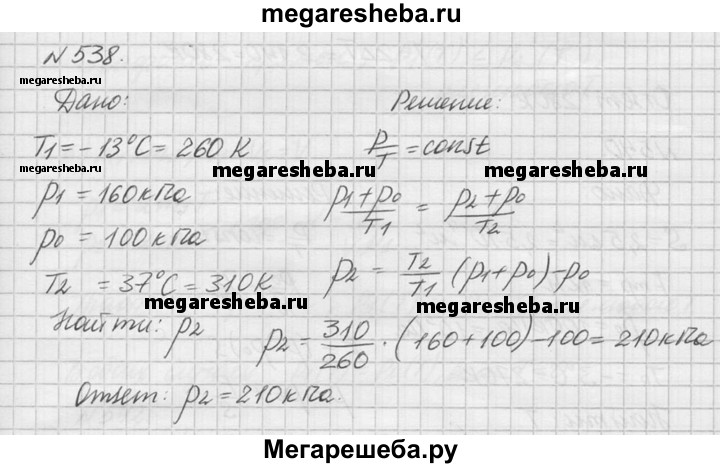 megaresheba.ru
N 538.
megaresheba.ru
Дано:
Решение:
megaresheba.ru
T1 = -13°C = 260 K
P/T = const
megaresheba.ru
megaresheba.ru
p1 = 160 кПа
(p1+p0)/T1 = (p2+p0)/T2
p0 = 100 кПа
T2 = 37°C = 310 K
p2 = T2/T1 (p1+p0)-p0
megaresheba.ru
megaresheba.ru
Найти: p2
p2 = 310/260 · (160+100)-100 = 210 кПа
Ответ: p2 = 210 кПа.
Мегарешеба.ру